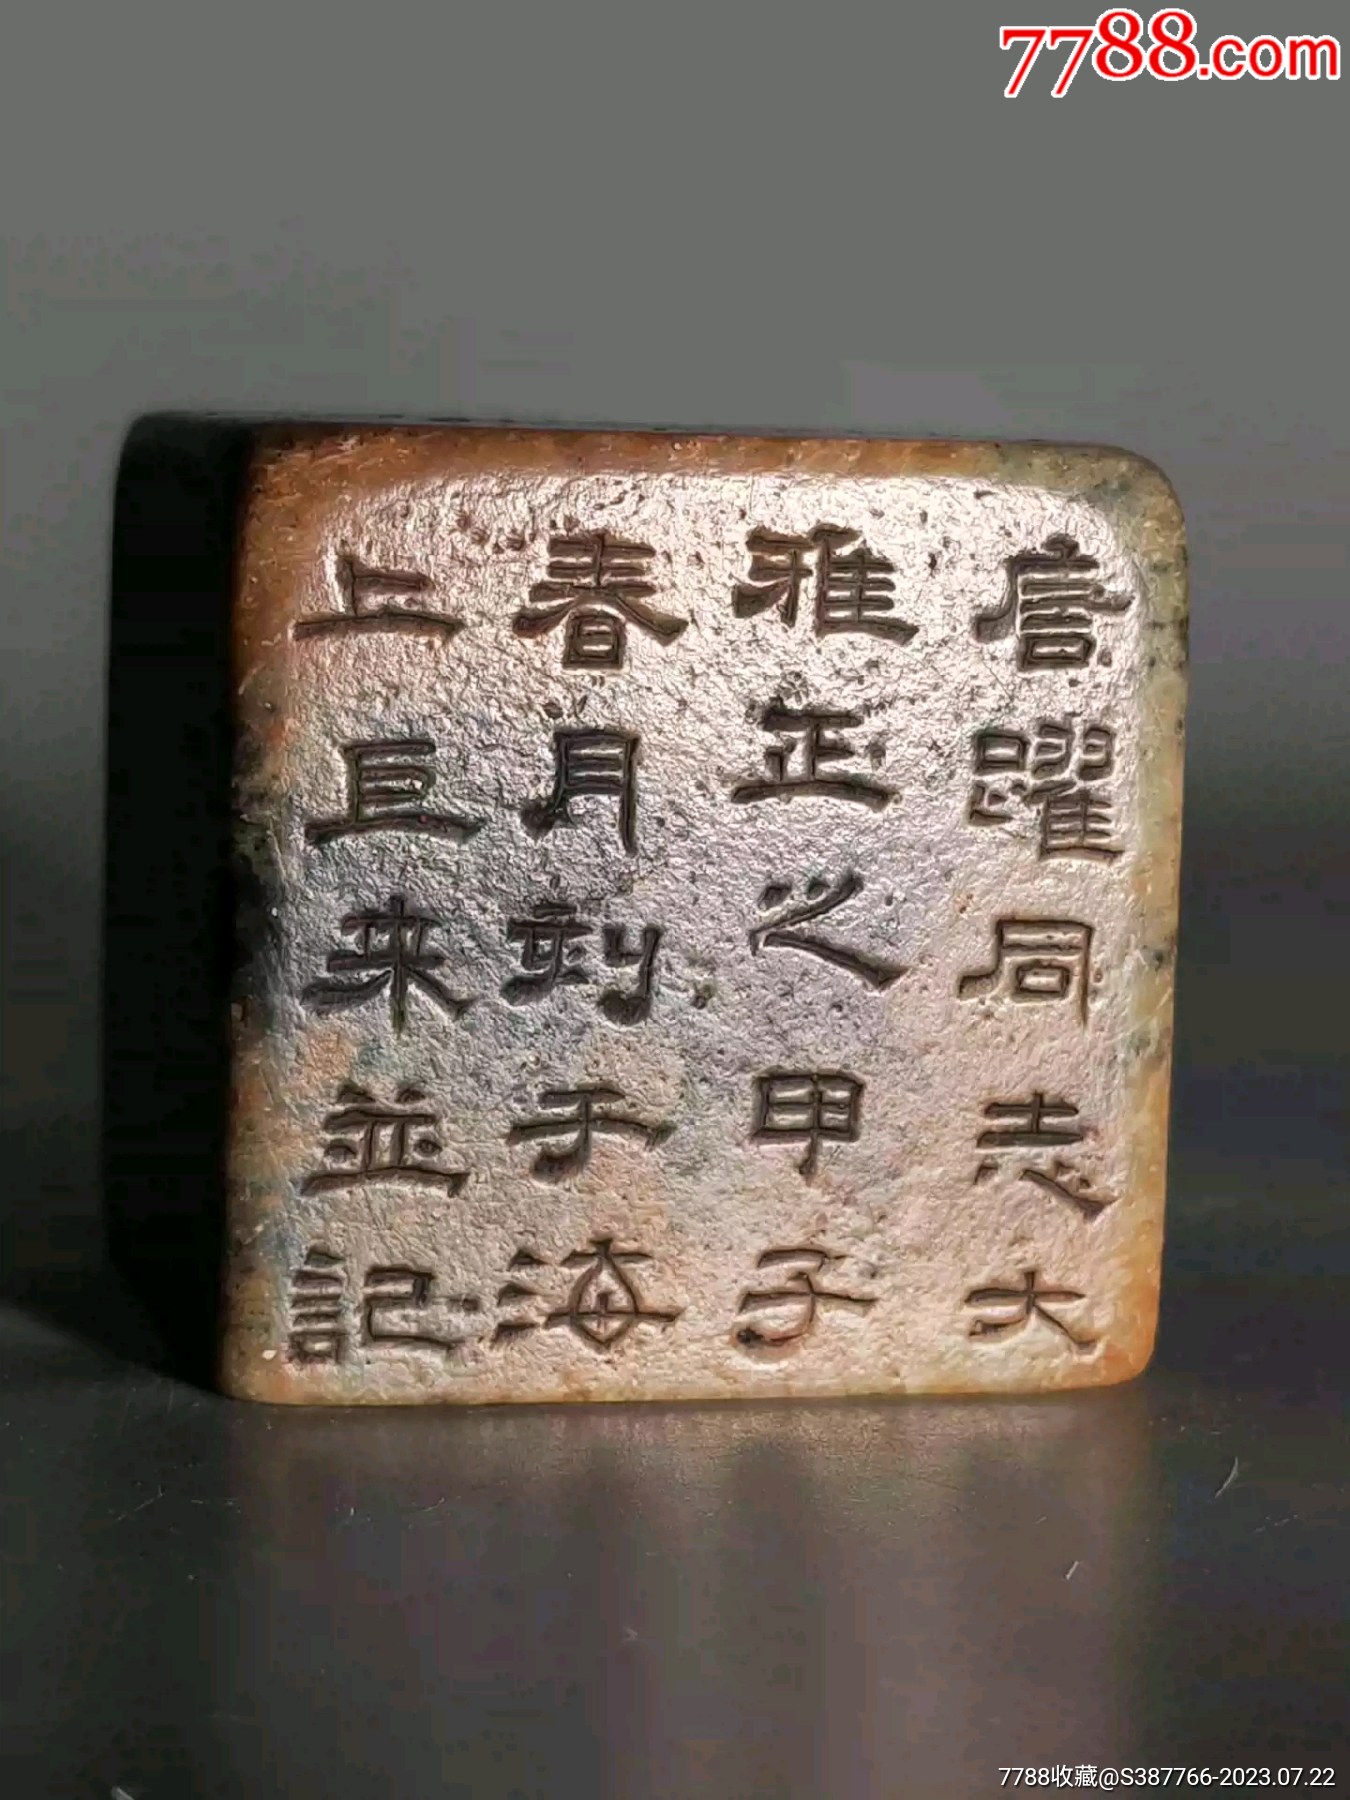 7788.com
唐躍同志大
雅正之甲子
春月刻于海
上巨来並記
7788收藏@S387766-2023.07.22